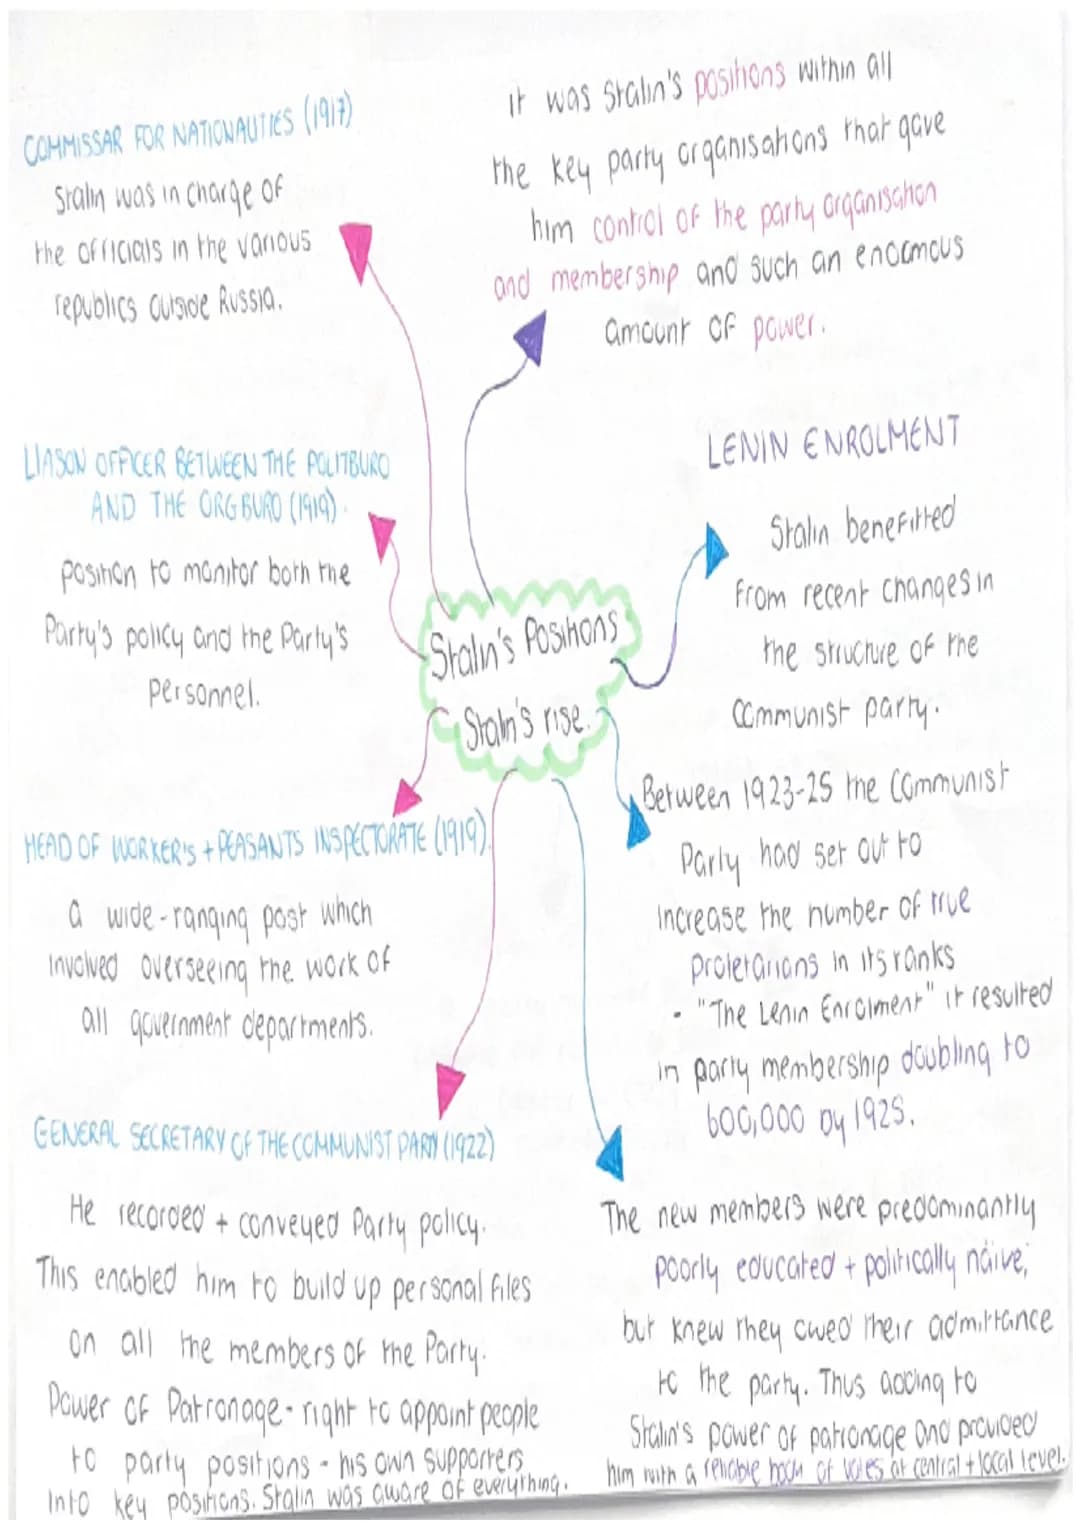 COMMISSAR FOR NATIONALITIES (1917)
Stalin was in charge of
the officials in the various
republics outside Russia.
it was Stalin's positions within all
the key party organisations that gave
him control of the party organisation
and membership and such an enormous
amount of power.
LIASON OFFICER BETWEEN THE POLITBURO
AND THE ORGBURO (1919).
position to monitor both the
Party's policy and the Party's
Personnel.
LENIN ENROLMENT
Stalin benefitted
from recent changes in
the structure of the
Communist party.
Stalin's Positions
Stalin's rise.
HEAD OF WORKER'S + PEASANTS INSPECTORATE (1919).
a wide-ranging post which
involved overseeing the work of
all government departments.
Between 1923-25 the Communist
Party had set out to
increase the number of true
proletarians in its ranks
- "The Lenin Enrolment" it resulted
in party membership doubling to
600,000 by 1925.
GENERAL SECRETARY OF THE COMMUNIST PARTY (1922)
He recorded + conveyed Party policy.
This enabled him to build up personal files
on all the members of the Party.
Power of Patronage - right to appoint people
to party positions - his own supporters
into key positions. Stalin was aware of everything.
The new members were predominantly
poorly educated + politically näive;
but knew they owed their admittance
to the party. Thus adding to
Stalin's power of patronage and provided
him with a reliable body of votes at central + local level.